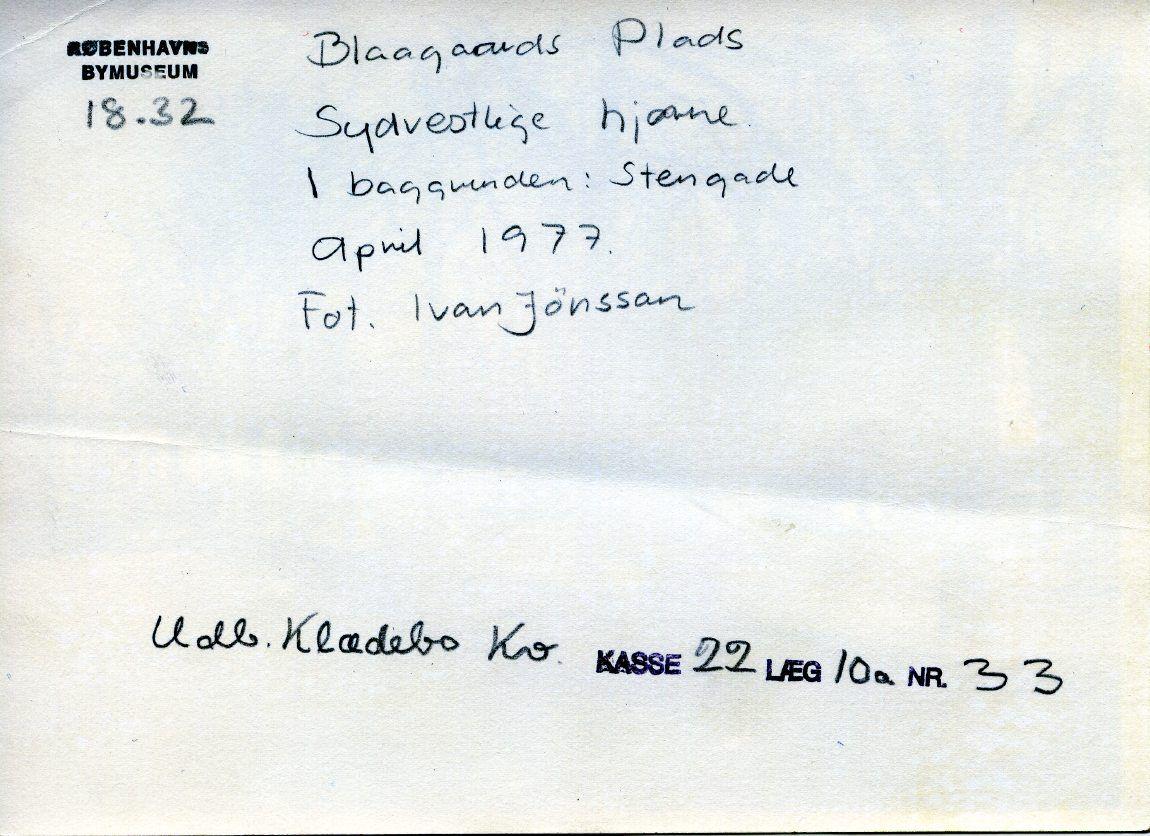 KØBENHAVNS
BYMUSEUM
18.32
Blaagaards Plads
Sydvestlige hjørne.
I baggrunden: Stengade
April 1977.
Fot. Ivan Jönsson
Udb. Klædebo Kv.
KASSE 22 LÆG 10a NR. 33